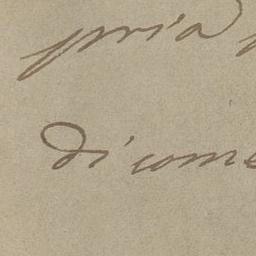 pria
di come